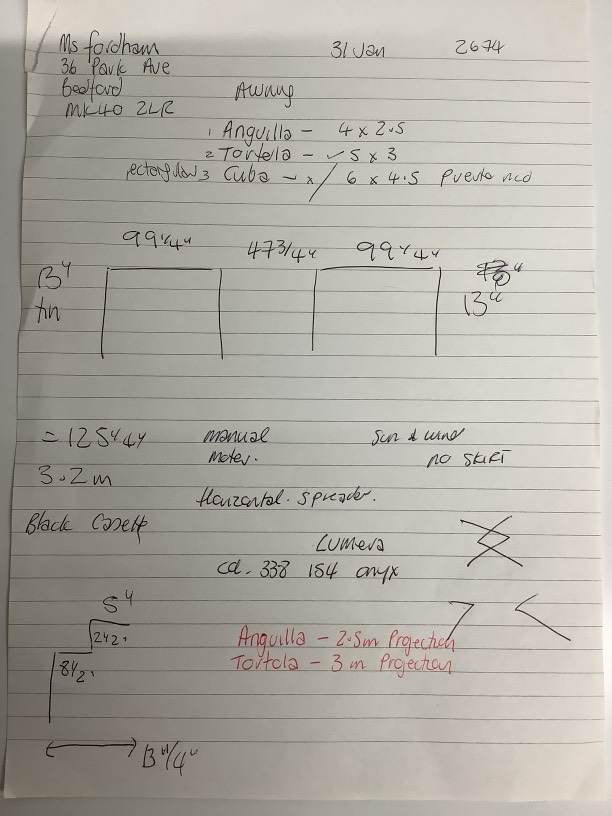 Ms Fordham 31 Jan 2674
36 Park Ave
Bedford
MK40 2LR
Awning
1 Anguilla - 4 x 2.5
2 Tortola - ✓ 5 x 3
3 Cuba - x 6 x 4.5 Puerto rico
99 1/4" 47 3/4" 99 1/4"
13"
13"
= 125 1/4"
manual
Sun & wind
3.2m
Motor.
no skirt
Horizontal. spreader.
Black Casette
Lumera
col. 338 154 onyx
5"
24 1/2.
8 1/2.
Anguilla - 2.5m Projection
Tortola - 3 m Projection
13 1/4"